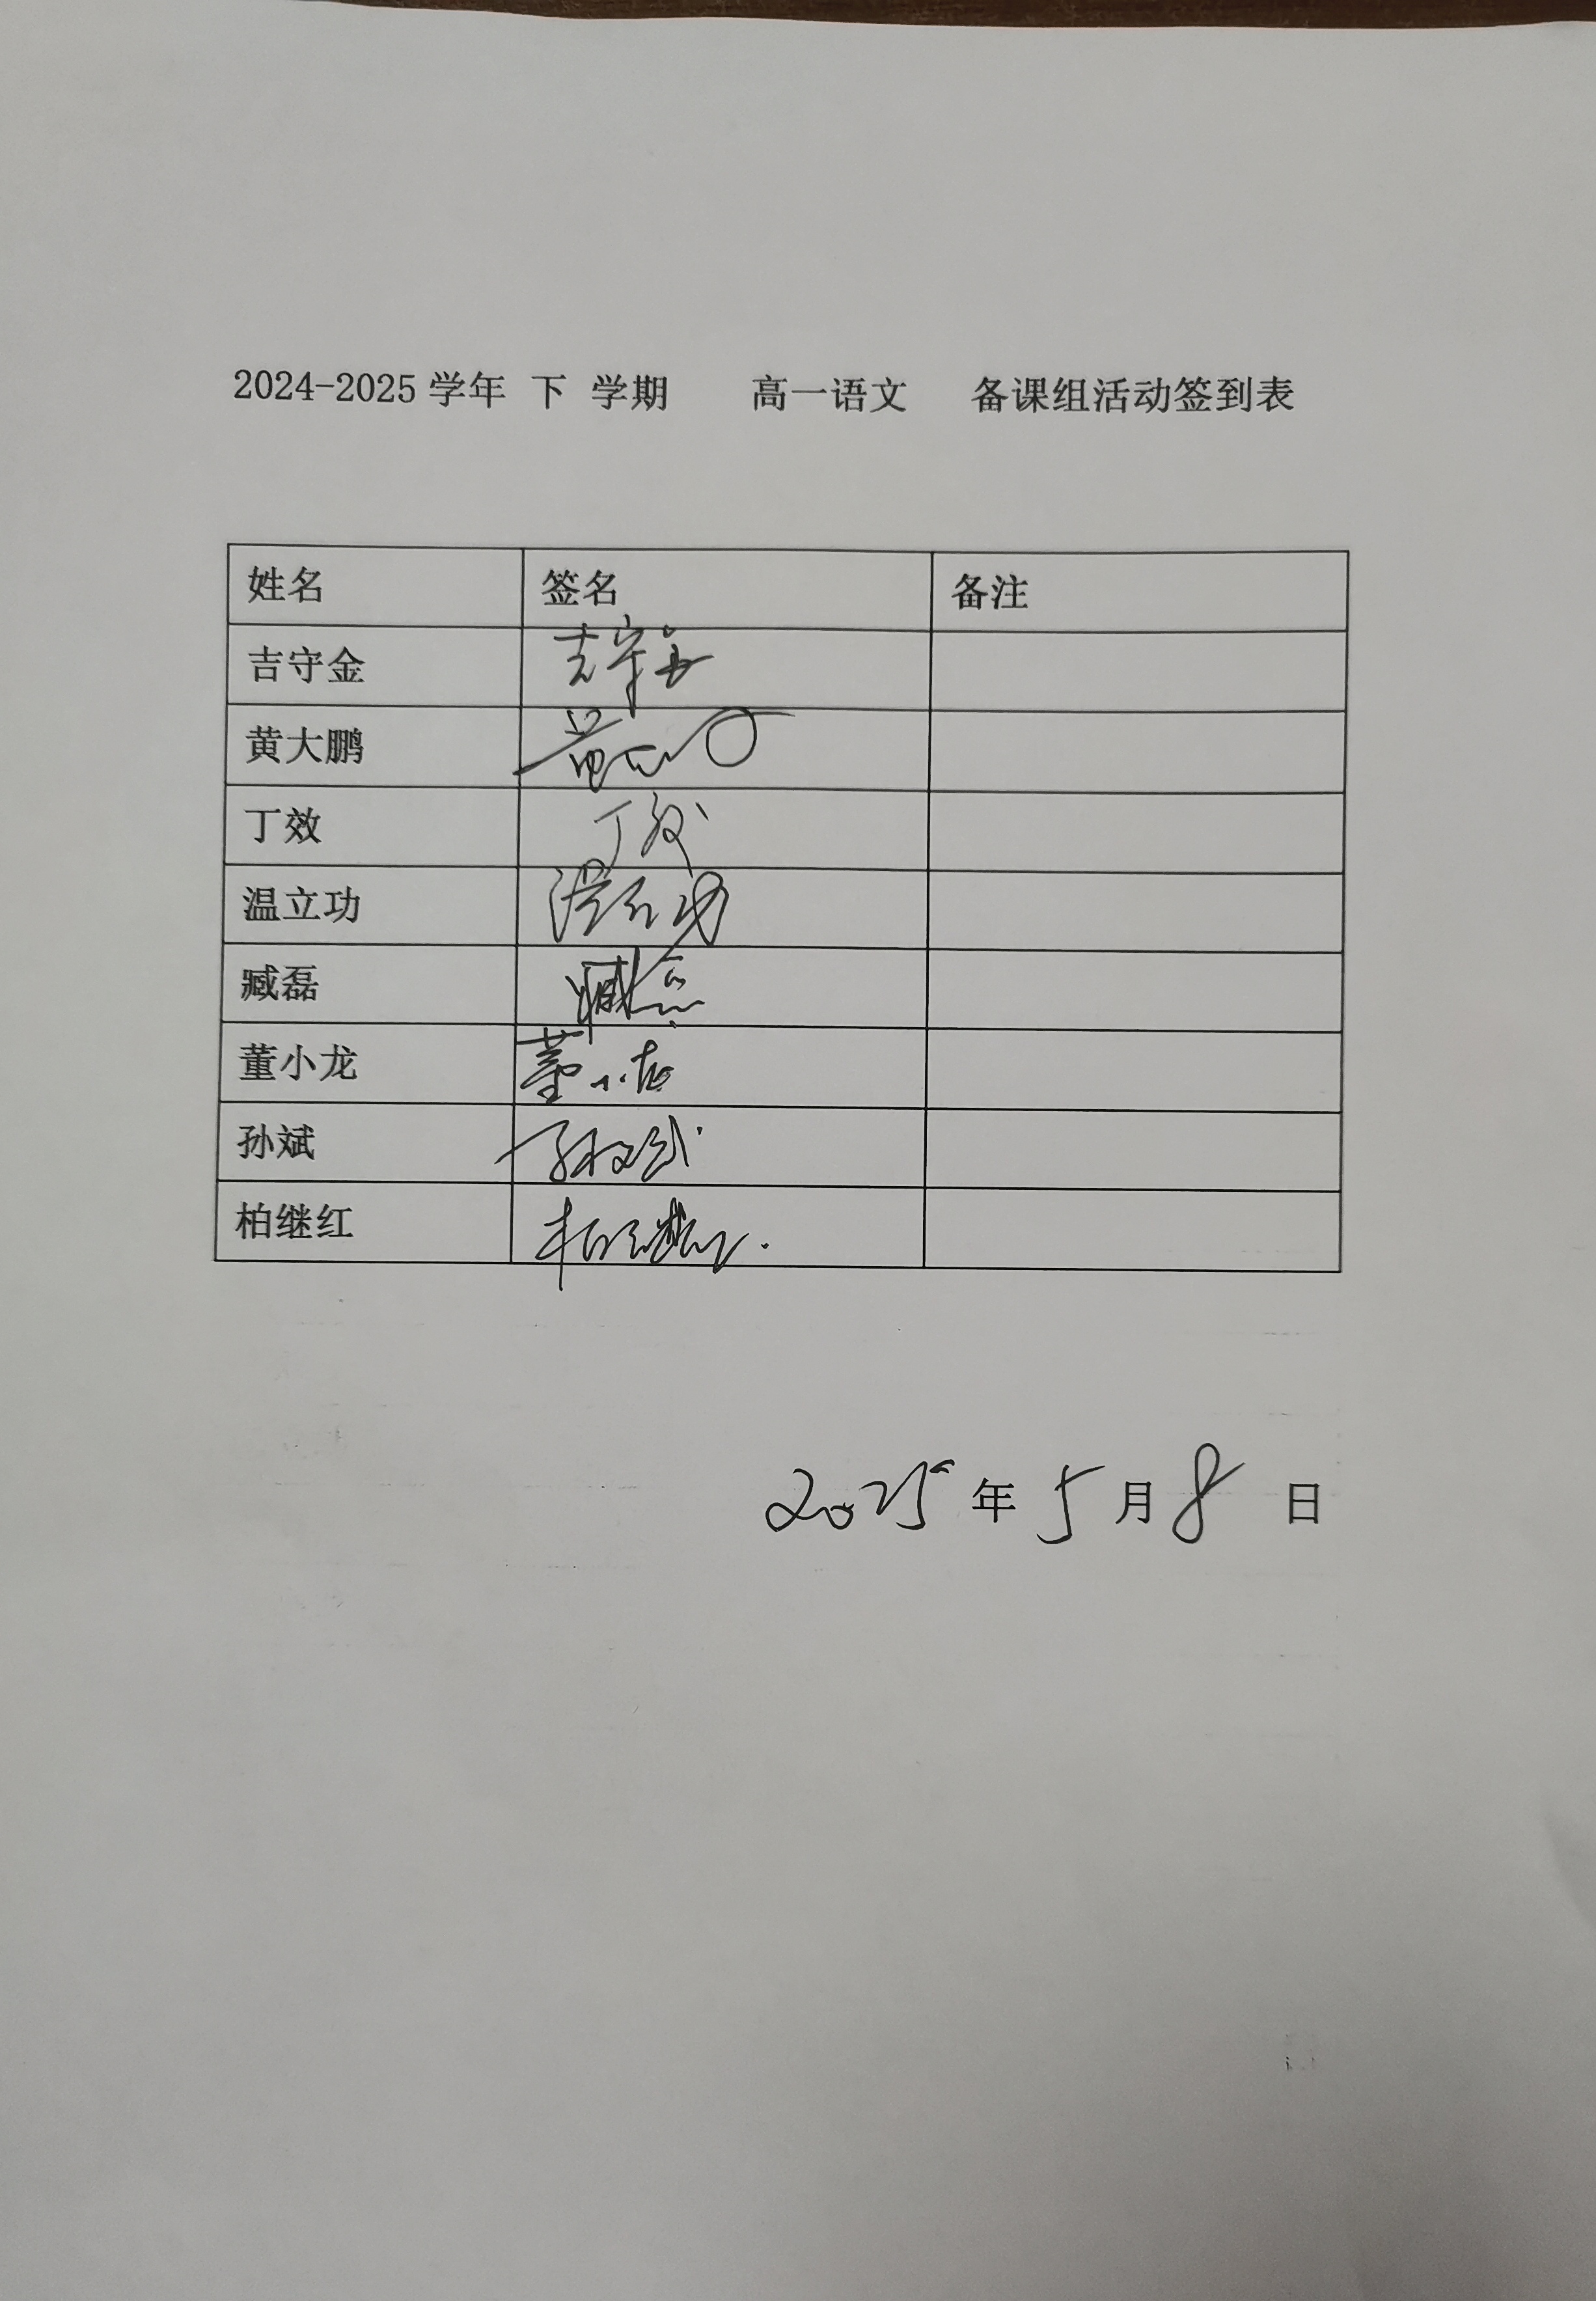 2024-2025 学年 下 学期 高一语文 备课组活动签到表
姓名 签名 备注
吉守金 吉守金
黄大鹏 黄大鹏
丁效 丁效
温立功 温立功
臧磊 臧磊
董小龙 董小龙
孙斌 孙斌
柏继红 柏继红
2025 年 5 月 8 日